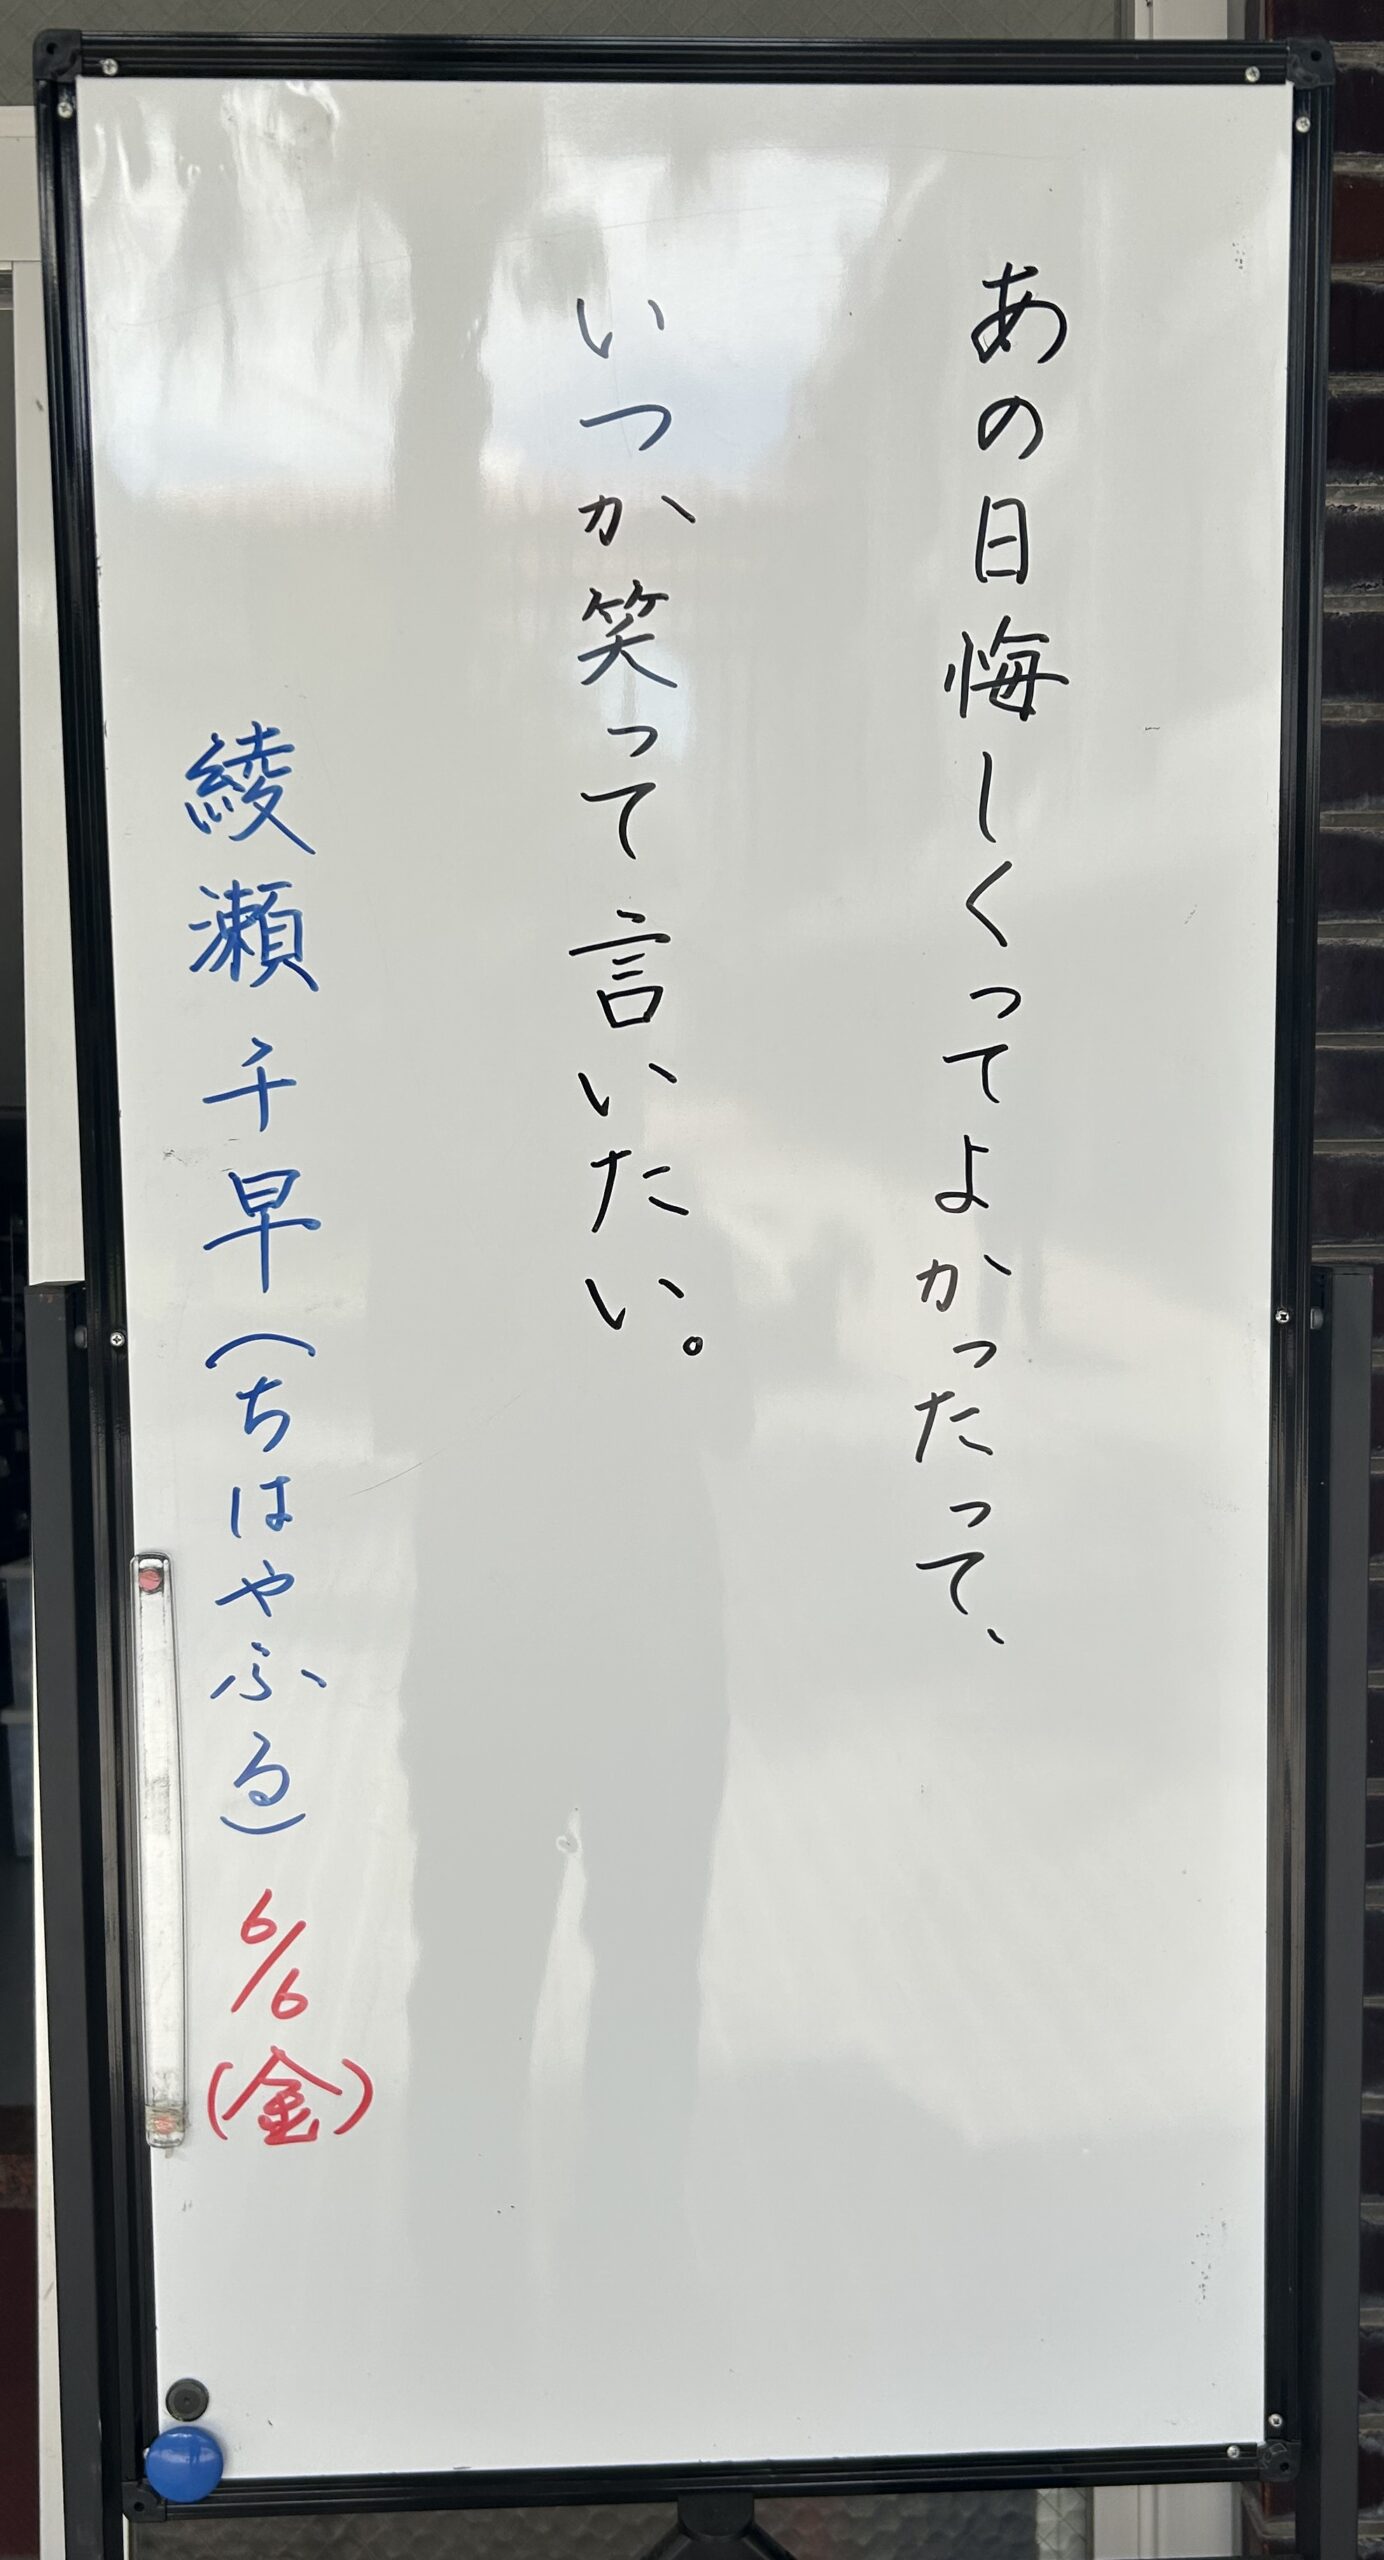 あの日悔しくってよかったって、
いつか笑って言いたい。
綾瀬千早(ちはやふる) 6/6(金)